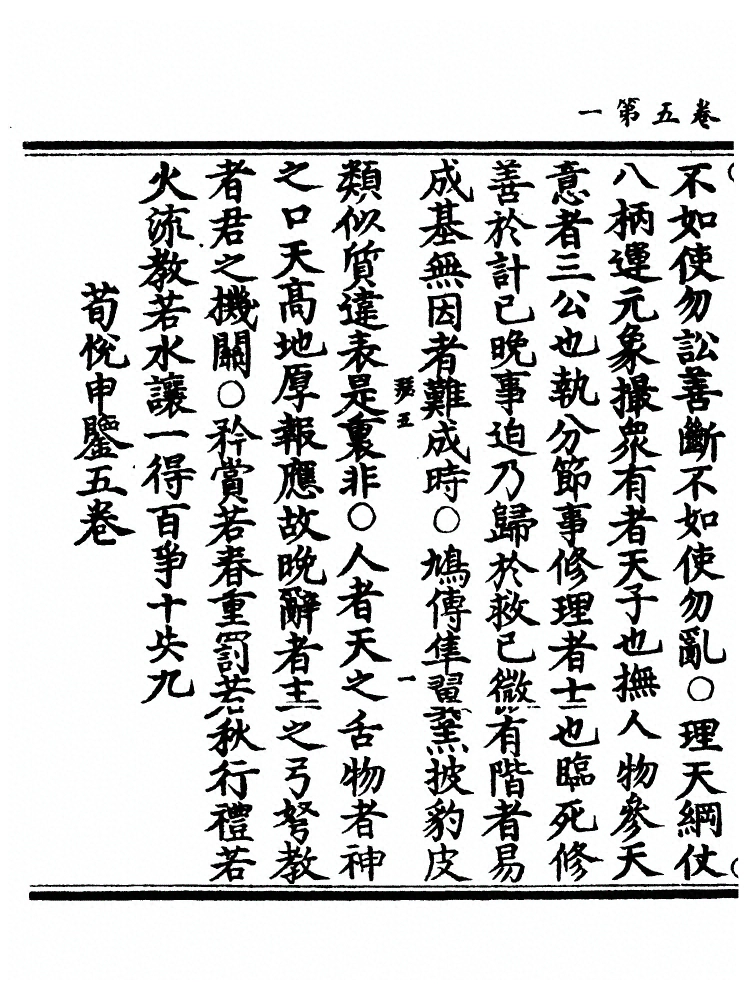 卷五第一
不如使勿訟善斷不如使勿亂○理天綱仗
八柄運元象撮衆有者天子也撫人物參天
意者三公也執分節事修理者士也臨死修
善於計已晚事迫乃歸於救已微有階者易
成基無因者難成時○鳩傳隼翼羔披豹皮
類似質違表是裏非○人者天之舌物者神
之口天高地厚報應故晚辭者主之弓弩教
者君之機關○矜賞若春重罰若秋行禮若
火流教若水讓一得百爭十失九
荀悅申鑒五卷
五
一